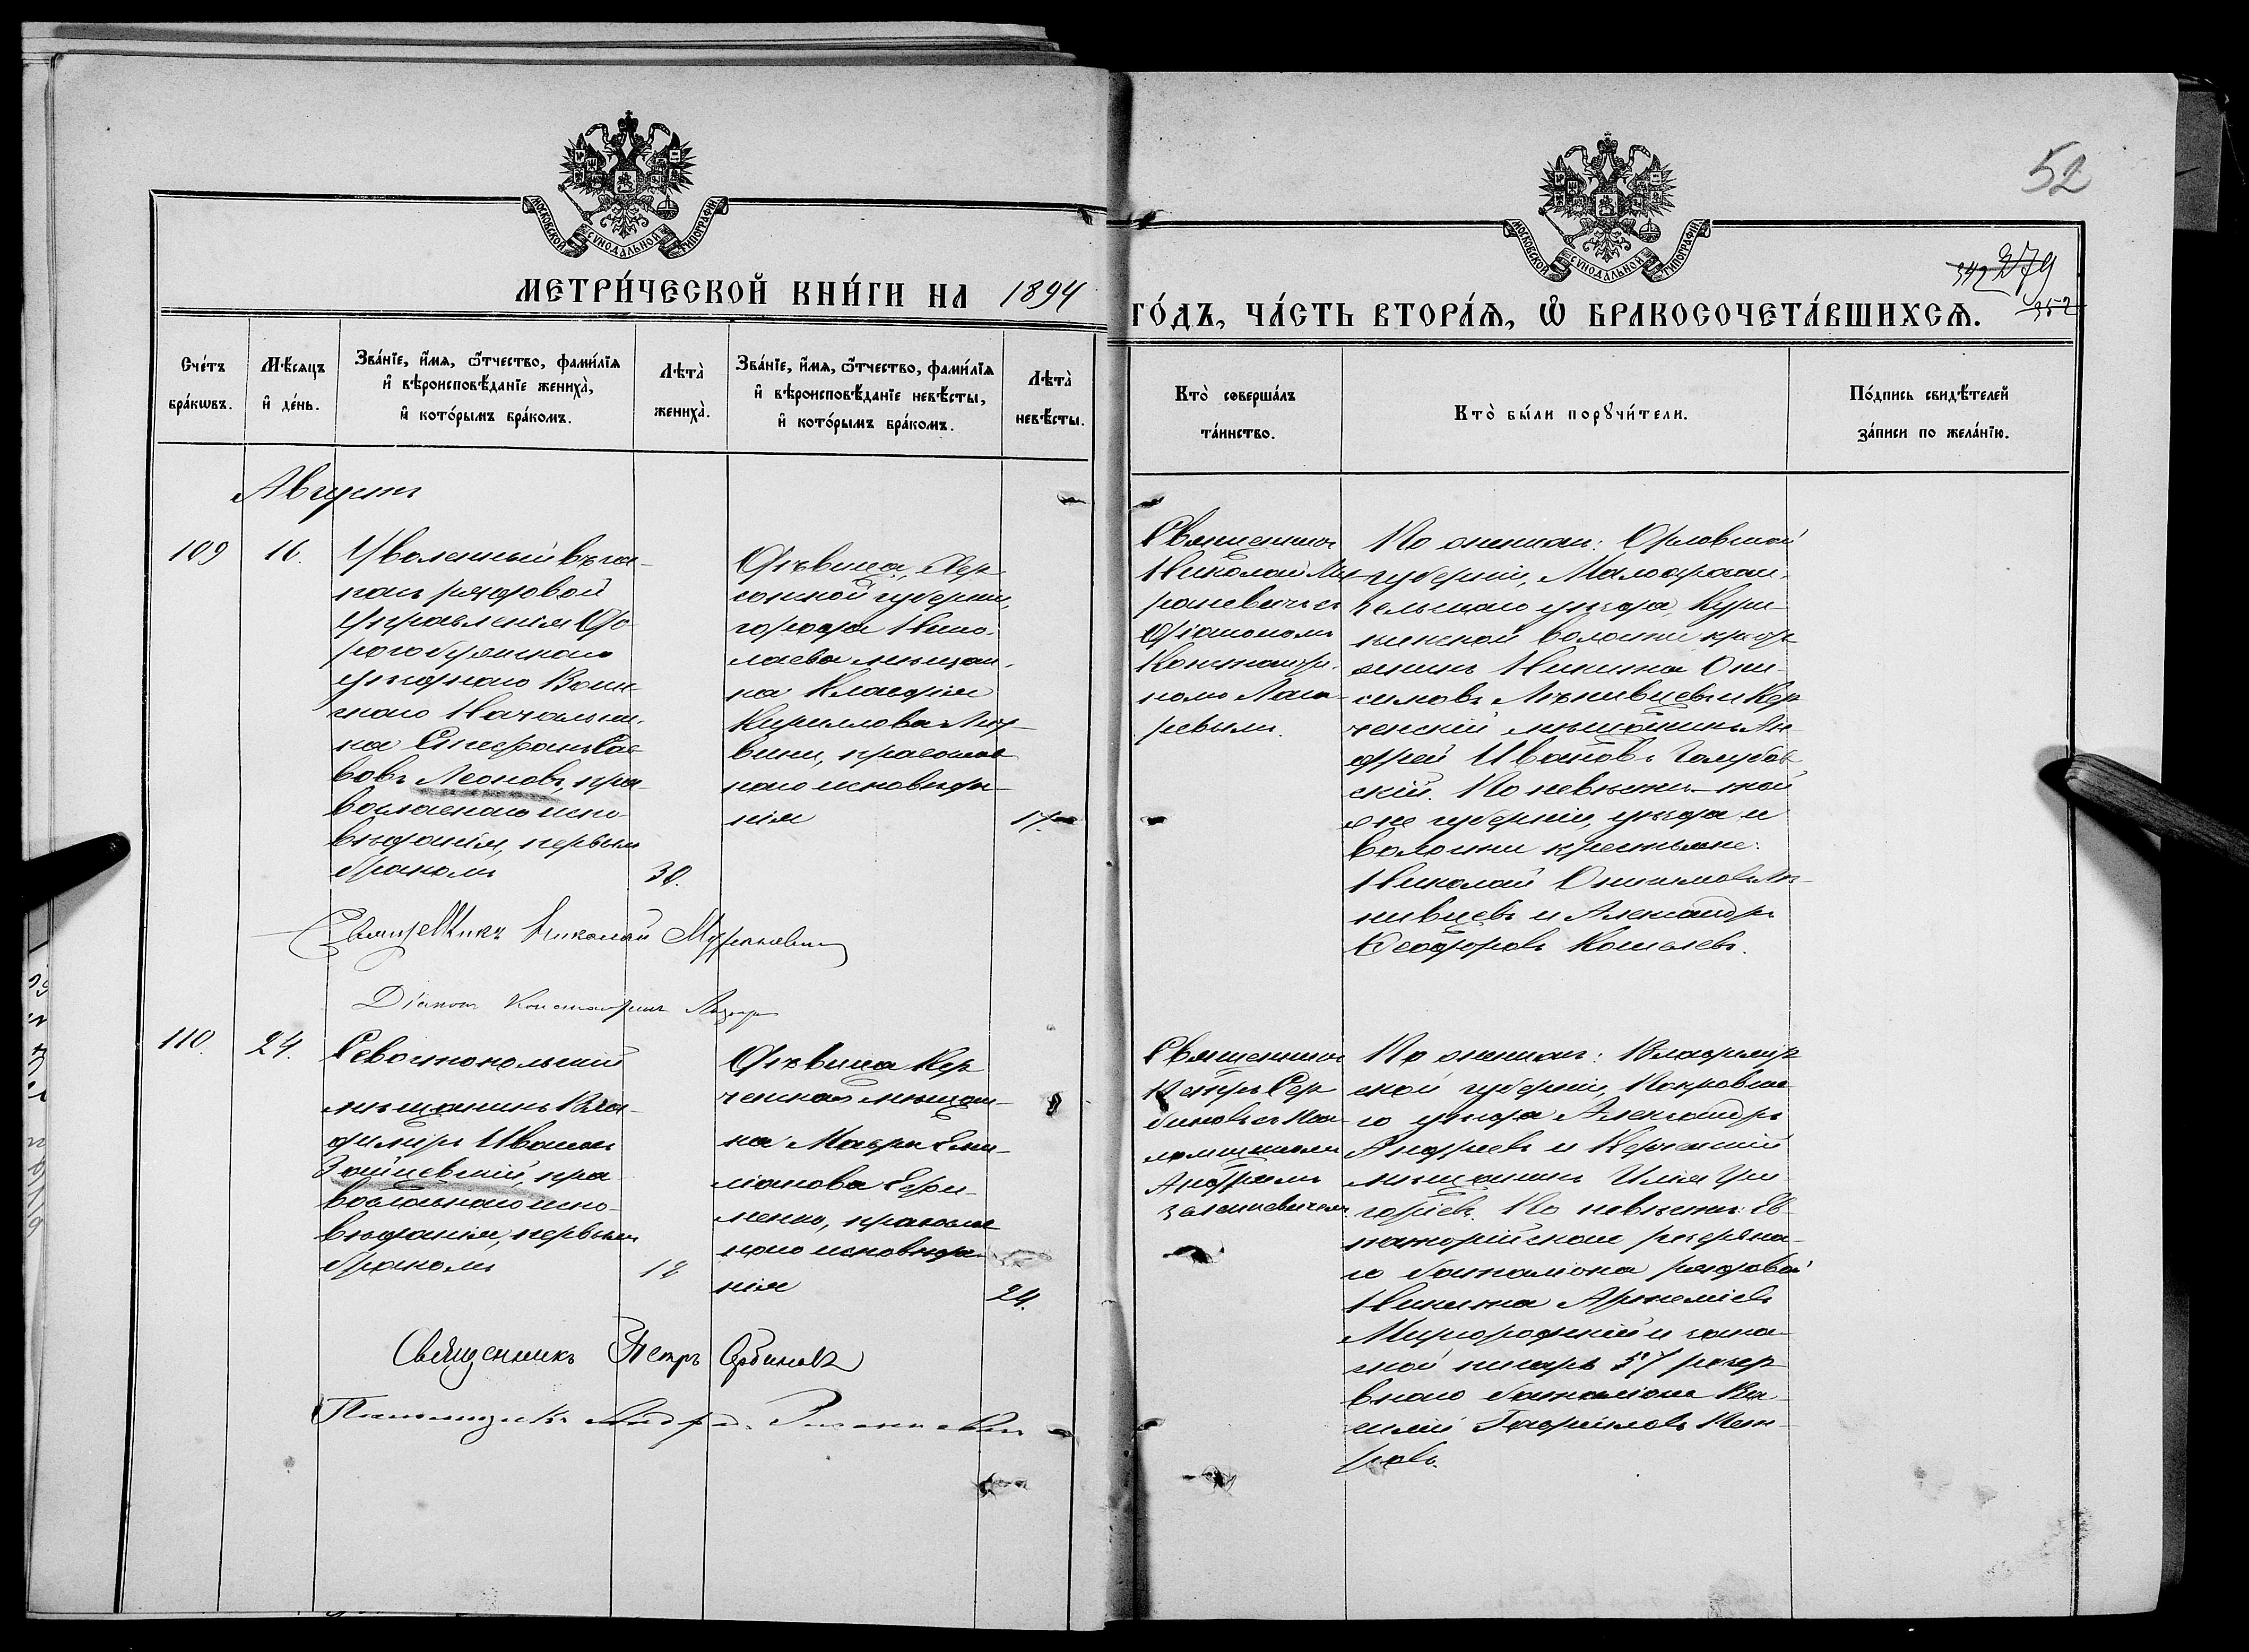 52
342 279
352
МОСКОВСКОЙ СУНОДАЛЬНОЙ ТИПОГРАФІИ
МОСКОВСКОЙ СУНОДАЛЬНОЙ ТИПОГРАФІИ
МЕТРИ́ЧЕСКОЙ КНИ́ГИ НА 1894
ГО́ДЪ, ЧА́СТЬ ВТОРА́Ѧ, Ѡ БРАКОСОЧЕТА́ВШИХСѦ.
Сче́тъ
бра́кѡвъ.
Мѣ́сяцъ
и҆ де́нь.
Зва́нїе, и҆́мя, ѻ҆́тчество, фами́лїя
и҆ вѣроисповѣ́данїе жениха̀,
и҆ кото́рымъ бра́комъ.
Лѣта̀
жениха̀.
Зва́нїе, и҆́мя, ѻ҆́тчество, фами́лїя
и҆ вѣроисповѣ́данїе невѣ́сты,
и҆ кото́рымъ бра́комъ.
Лѣта̀
невѣ́сты.
Кто̀ соверша́лъ
та́инство.
Кто̀ бы́ли порꙋчи́тели.
По́дпись свидѣ́телей
за́писи по жела́нїю.
Августъ
109
16.
Уволенный въ за-
пасъ рядовой
Управленія До-
рогобужскаго
уѣзднаго Воин-
скаго Начальни-
ка Стефанъ Сав-
вовъ Леоновъ, пра-
вославнаго испо-
вѣданія, первымъ
бракомъ
30.
Дѣвица, Хер-
сонской губерніи,
города Нико-
лаева мѣщан-
ка Клавдія
Кириллова
православ-
наго исповѣда-
нія
17.
Священникъ
Николай
съ
Діакономъ
Константи-
номъ Лаза-
ревымъ.
По женихѣ: Орловской
губерніи, Малоархан-
гельскаго уѣзда,
волости кресть-
янинъ Никита Они-
симовъ и Кер-
ченскій мѣщанинъ Ан-
дрей Ивановъ Голубов-
скій. По невѣстѣ: той
же губерніи, уѣзда и
волости крестьяне:
Николай Онисимовъ
и Александръ
Ѳеодоровъ Кошелевъ.
Священникъ Николай
Діаконъ Константинъ Лазар
110.
24.
Севастопольскій
мѣщанинъ Вла-
диміръ Ивановъ
Зайцевскій, пра-
вославнаго испо-
вѣданія, первымъ
бракомъ
18
Дѣвица Кер-
ченская мѣщан-
ка Мавра Еми-
ліанова Ефи-
менко, православ-
наго исповѣда-
нія
24.
Священникъ
Петръ Сер-
биновъ съ Пса-
ломщикомъ
Андреемъ
По женихѣ: Владимір-
ской губерніи, Покровска-
го уѣзда Александръ
Андреевъ и Керченскій
мѣщанинъ Илья Гри-
горьевъ. По невѣстѣ: Ев-
паторійскаго резервна-
го баталіона рядовой
Никита Артеміевъ
Миргородскій и запа-
сной писарь 57 резер-
внаго баталіона Ва-
силій Гавриловъ Пет-
ровъ.
Священникъ Петръ Сербиновъ
Псаломщикъ